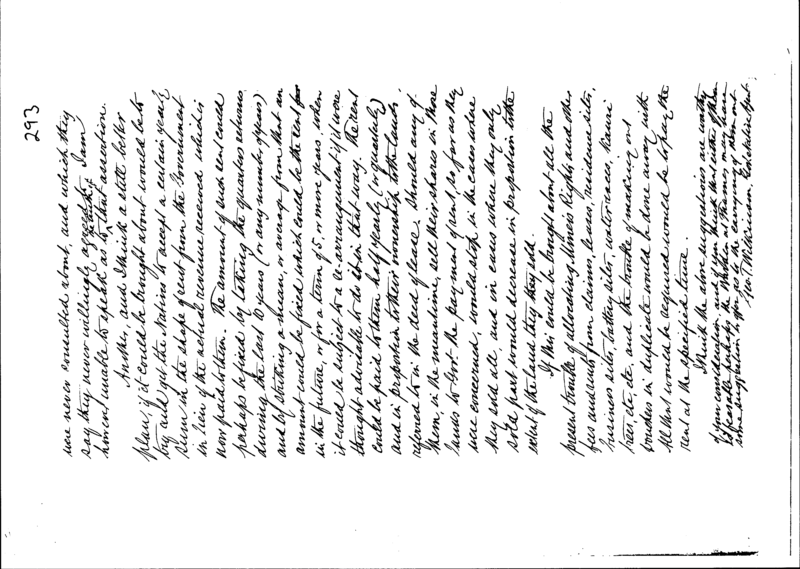 293
were never consulted about, and which they
say they never willingly agreed to. I am
however unable to speak as to that assertion.
Another, and I think a still better
plan, if it could be brought about would be to
try and get the Natives to accept a certain yearly
sum in the shape of rent from the Government
in lieu of the actual revenue received which is
now paid to them. The amount of such rent could
perhaps be fixed by taking the quarters returns
during the last 10 years (or any number of years)
and by striking a mean, or average from that an
amount could be fixed which could be the rent for
in the future, or for a term of 5, or more years, when
it could be subject to a re-arrangement if it were
thought advisable to do it in that way. The rent
could be paid to them half yearly (or quarterly)
and in proportion to their ownership to the lands
referred to in the deed of lease. Should any of
them, in the meantime, sell their shares in those
lands to Govt the payment of rent, as far as they
were concerned, would stop in the cases where
they sold all, and in cases where they only
sold part would decrease in proportion to the
extent of the land they sold.
If this could be brought about all the
present trouble of allocating Miner's Rights, and other
fees and rents from claims, leases, residence sites,
business sites, battery sites, water races, Kauri
trees, etc, etc, and the trouble of making out
vouchers in duplicate would be done away with
All that would be required would be to pay the
rent at the specified time.
I think the above suggestions are worthy
of your consideration, and if you think that either of them
is feasible perhaps the Warden at Thames may have
some suggestion to offer you as to the carrying of them out
Geo. T. Wilkinson.